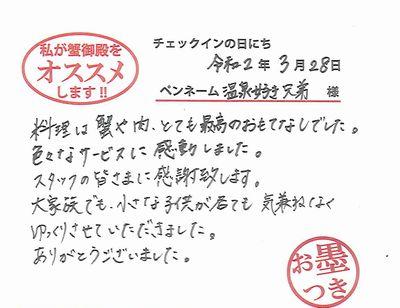 私が蟹御殿を
オススメ
します!!
チェックインの日にち
令和2年3月28日
ペンネーム 温泉好き兄弟 様
料理は蟹や肉、とても最高のおもてなしでした。
色々なサービスに感動しました。
スタッフの皆さまに感謝致します。
大家族でも、小さな子供が居ても気兼ねなく
ゆっくりさせていただきました。
ありがとうございました。
お墨
つき